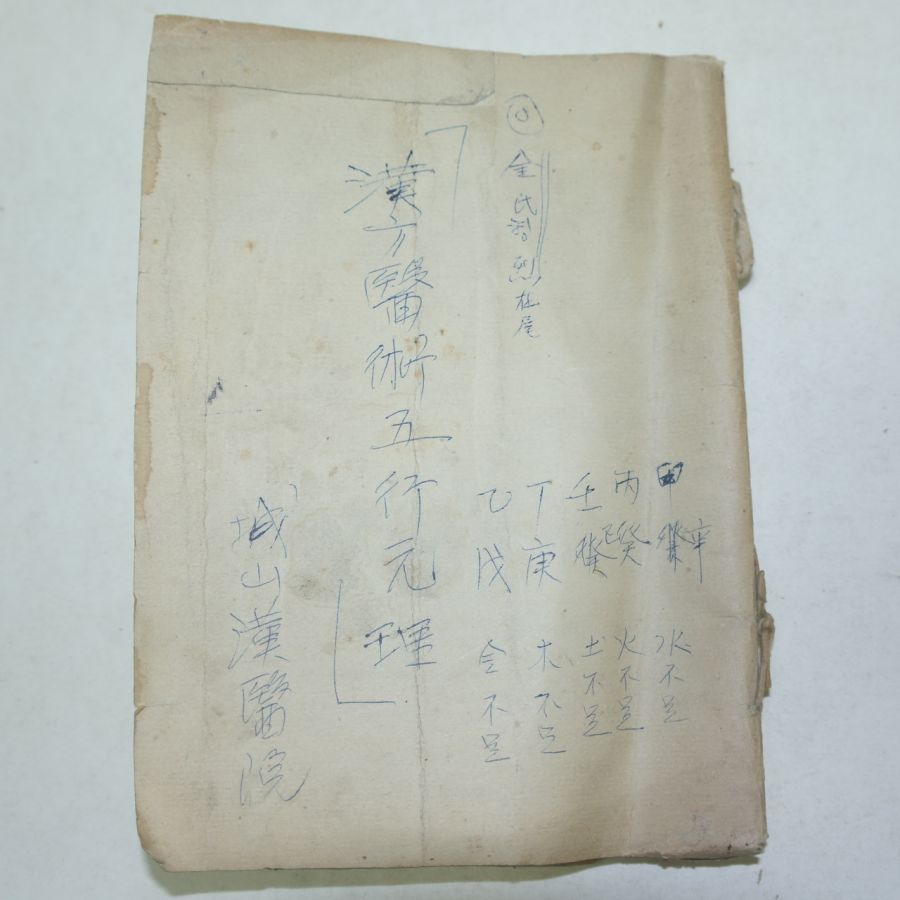 甲辛 水不足
丙癸 火不足
壬 土不足
丁庚 木不足
乙戊 金不足
金氏
「漢方醫術五行元理」
城山漢醫院